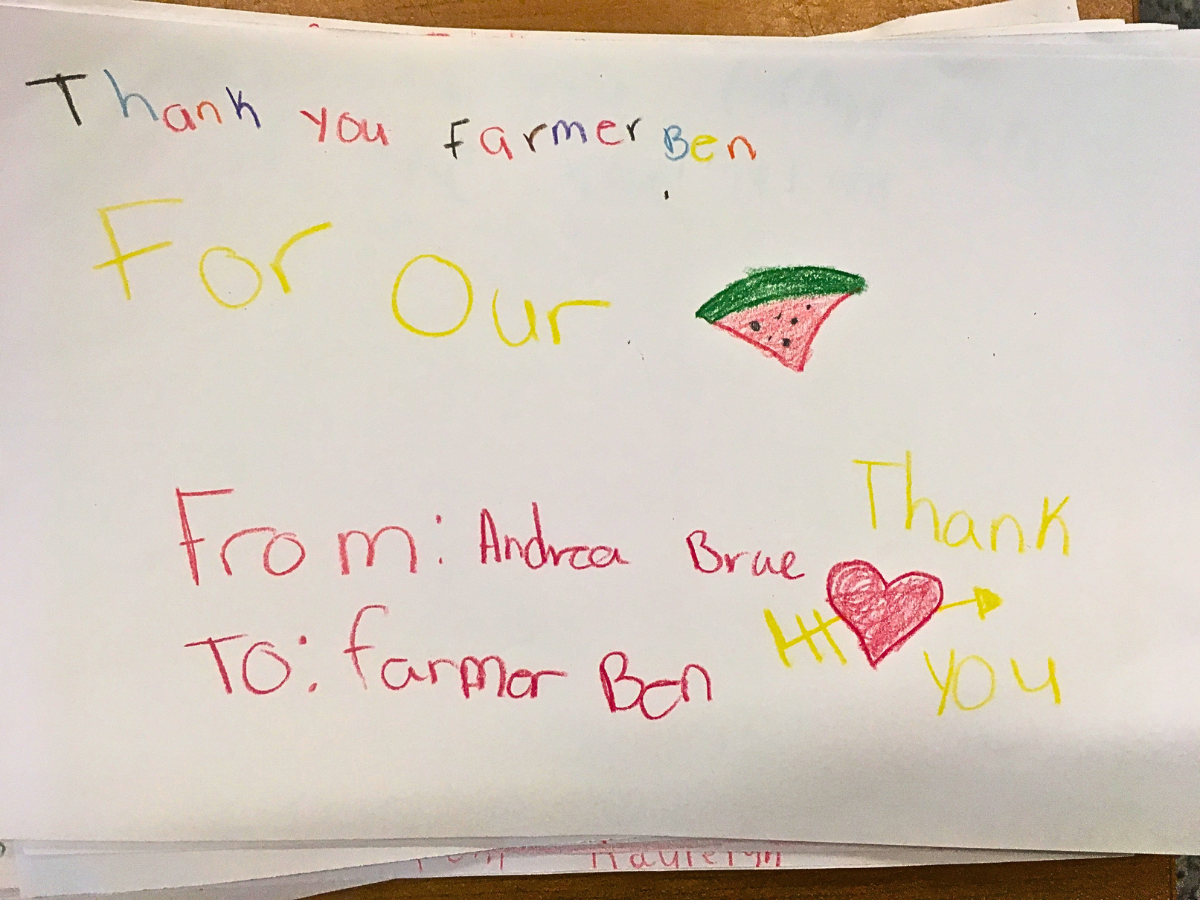 Thank you farmer Ben
For Our
From: Andrea Brue
To: farmer Ben
Thank
you